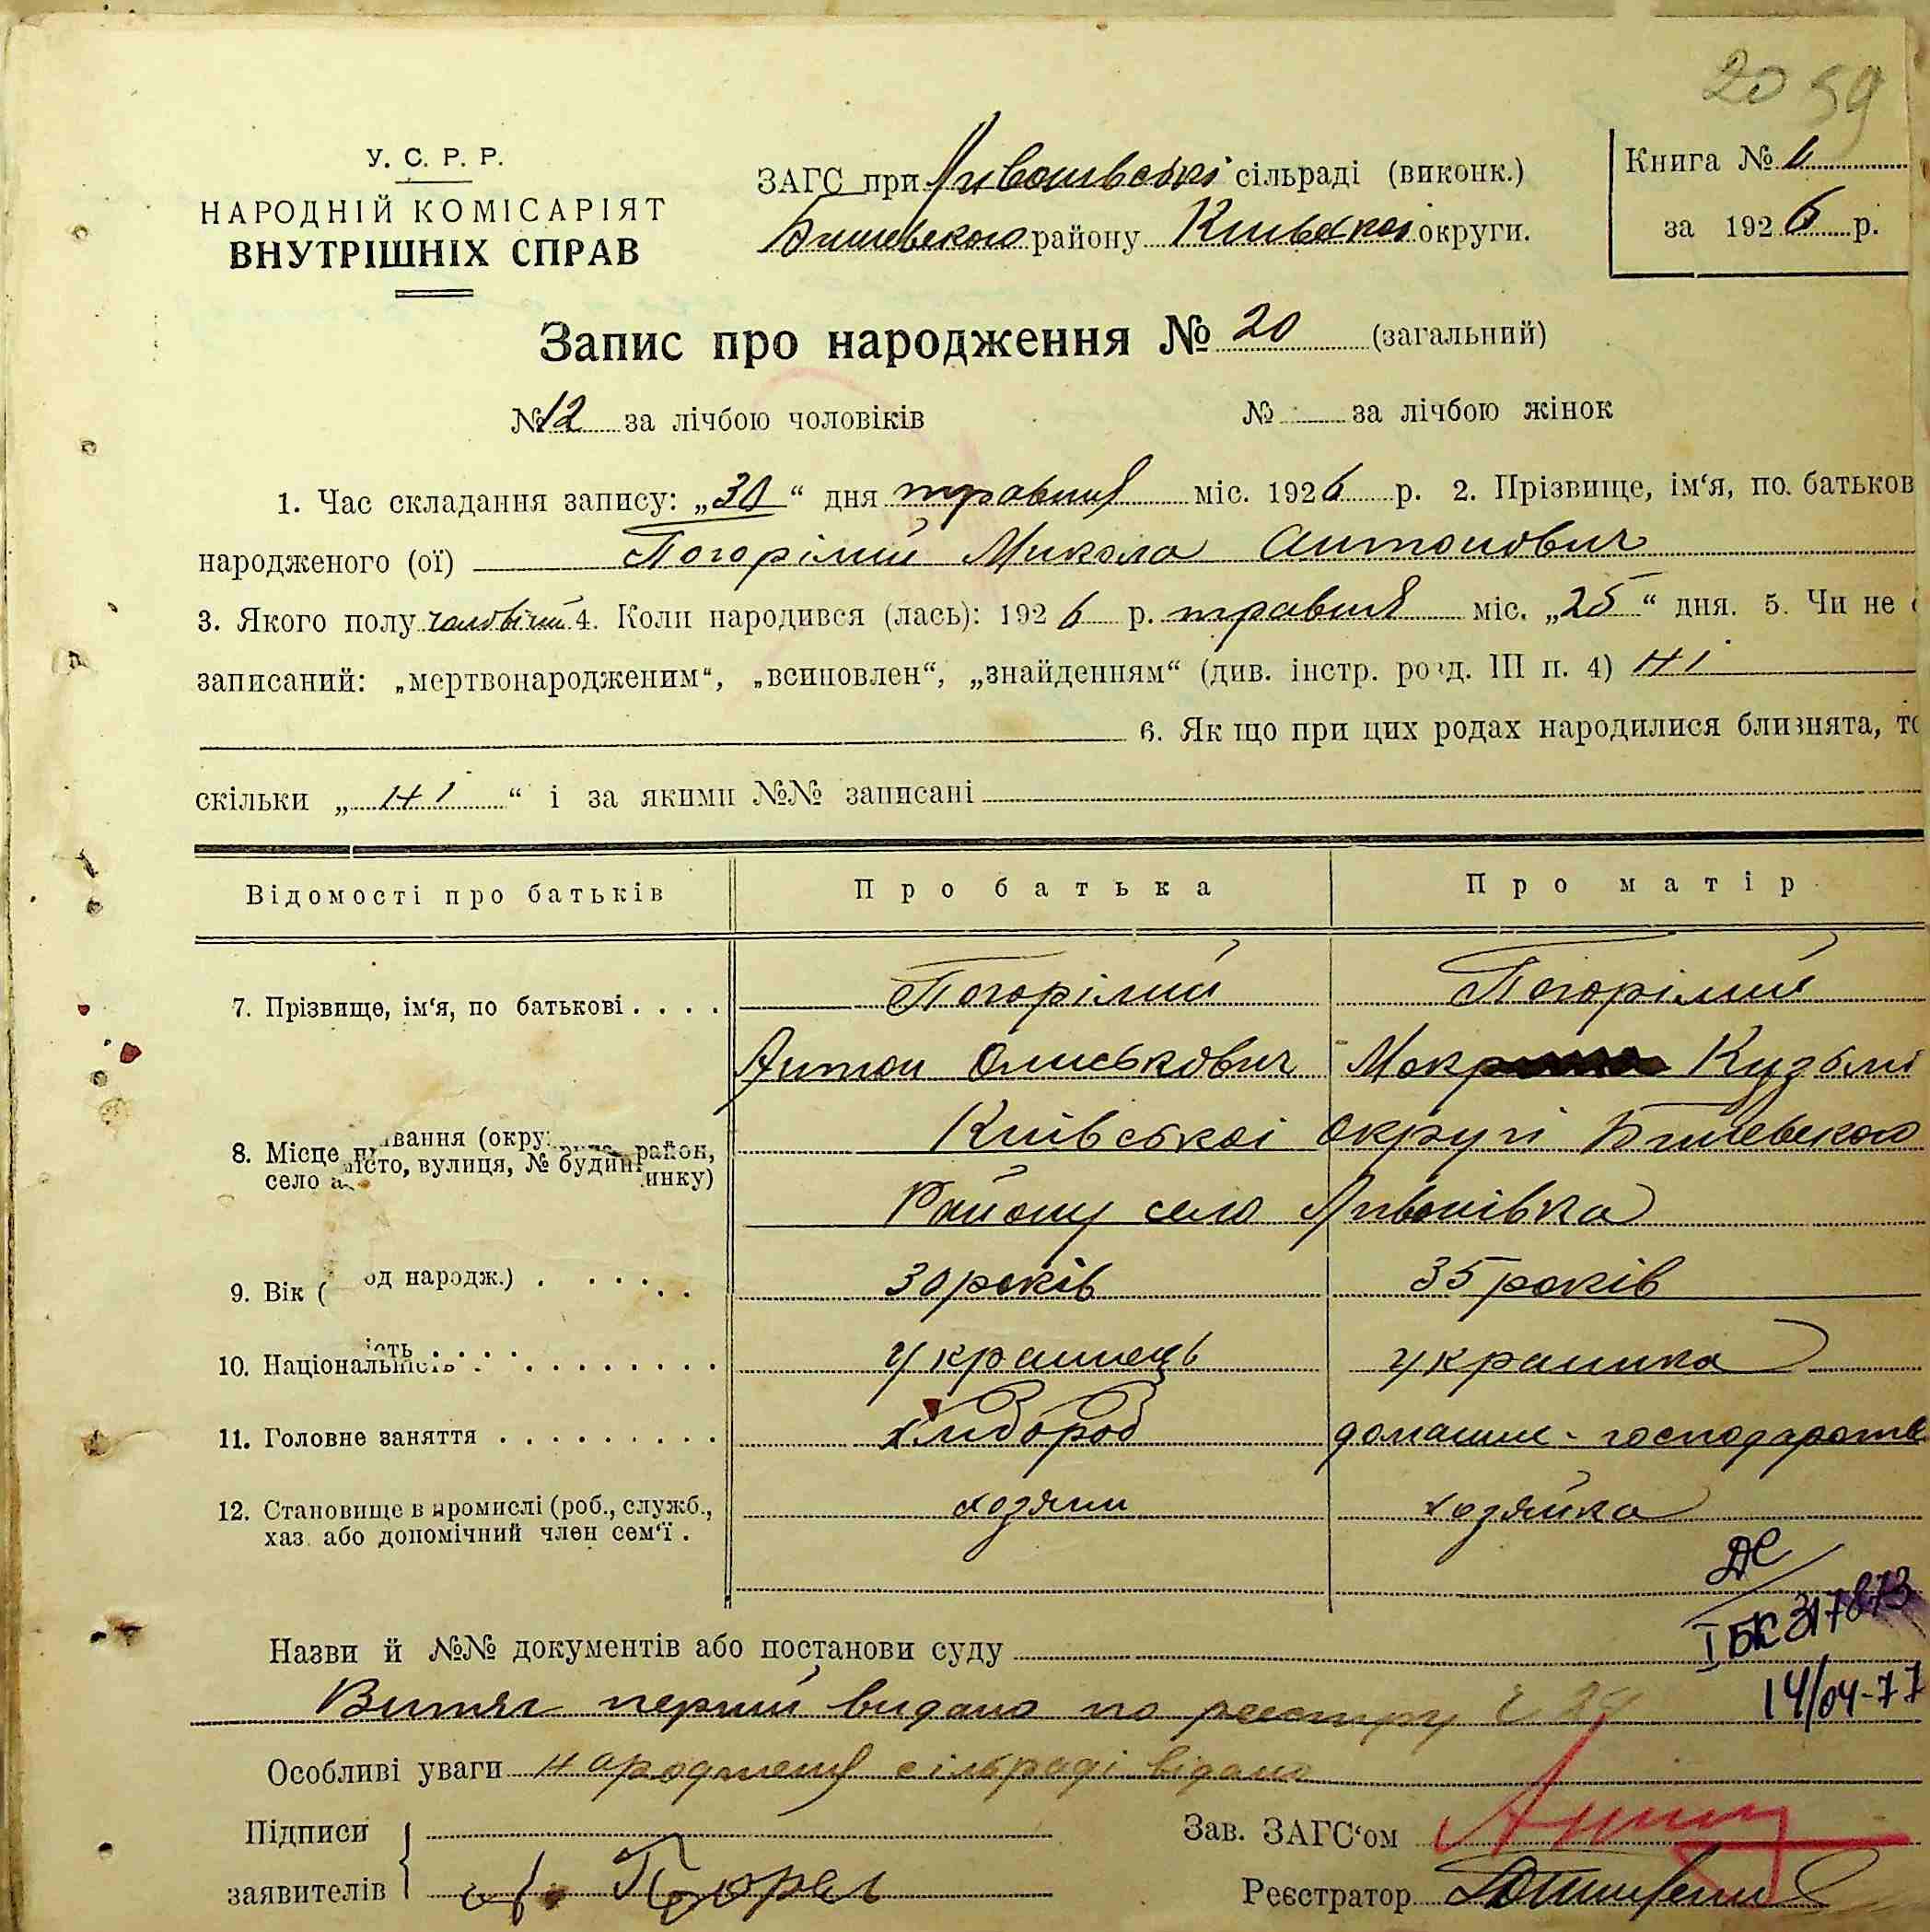 20 59
У. С. Р. Р.
НАРОДНІЙ КОМІСАРІЯТ
ВНУТРІШНІХ СПРАВ
ЗАГС при сільраді (виконк.)
Бишевського району Київської округи.
Книга №
за 1926 р.
Запис про народження № 20 (загальний)
№ 12 за лічбою чоловіків
№ за лічбою жінок
1. Час складання запису: „30“ дня травня міс. 1926 р. 2. Прізвище, ім‘я, по. батьков
народженого (ої) Погорілий Микола Антонович
3. Якого полу чоловічий 4. Коли народився (лась): 1926 р. травня міс. „25“ дня. 5. Чи не
записаний: „мертвонародженим“, „всиновлен“, „знайденням“ (див. інстр. розд. III п. 4) Ні
6. Як що при цих родах народилися близнята, то
скільки „Ні“ і за якими №№ записані
Відомості про батьків
Про батька
Про матір
7. Прізвище, ім‘я, по батькові . . . .
Погорілий
Погорілий
Антон Олиськович
Кузьмі
8. Місце вання (окру район,
село місто, вулиця, № будин инку)
Київської округи Бишевского
Району село
9. Вік ( од народж.) . . . . . .
30 років
35 років
10. Національність . . . . . . . . .
Українець
Українка
11. Головне заняття . . . . . . . . .
хлібороб
домашне - господарств
12. Становище в промислі (роб., служб.,
хаз. або допомічний член сем‘ї .
хозяин
хозяйка
ДС
I БК 317873
14/04-77
Назви й №№ документів або постанови суду
Витяг перший видано по реестру
Особливі уваги народження сільраді відано
Підписи
заявителів
Зав. ЗАГС‘ом
Реєстратор